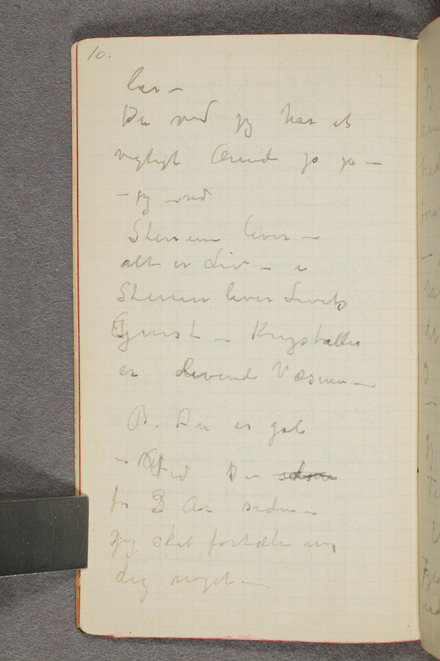 10.
Du ved jeg har et
vigtigt Ærinde jo ja —
— jeg ved
Stenene lever —
alt er Liv —
Stenene lever Livets
Gnist — Krystaller
er levende Væsener —
B. Du er gal
— Ved Du
for 3 Aar siden —
jeg skal fortælle
dig noget —